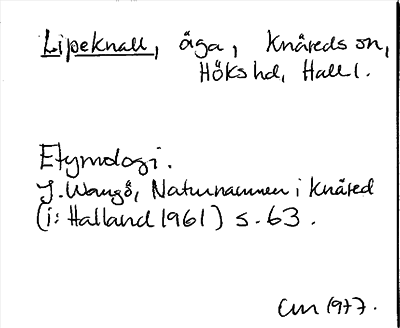 Lipeknall, äga, Knäreds sn,
Höks hd, Hall.
Etymologi.
J. Wangö, Naturnamnen i Knäred
(i: Halland 1961) s. 63.
CM 1977.